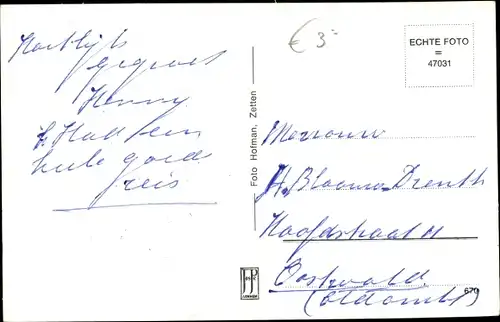 Hartelijk
gegroet
Henny
hele goede
reis
€ 3=
ECHTE FOTO
=
47031
Foto Hofman, Zetten
Mevrouw
H. Bloema-Drenth
Hoofdstraat 11
Oostwold
(Oldambt)
JosPé
ARNHEM
670